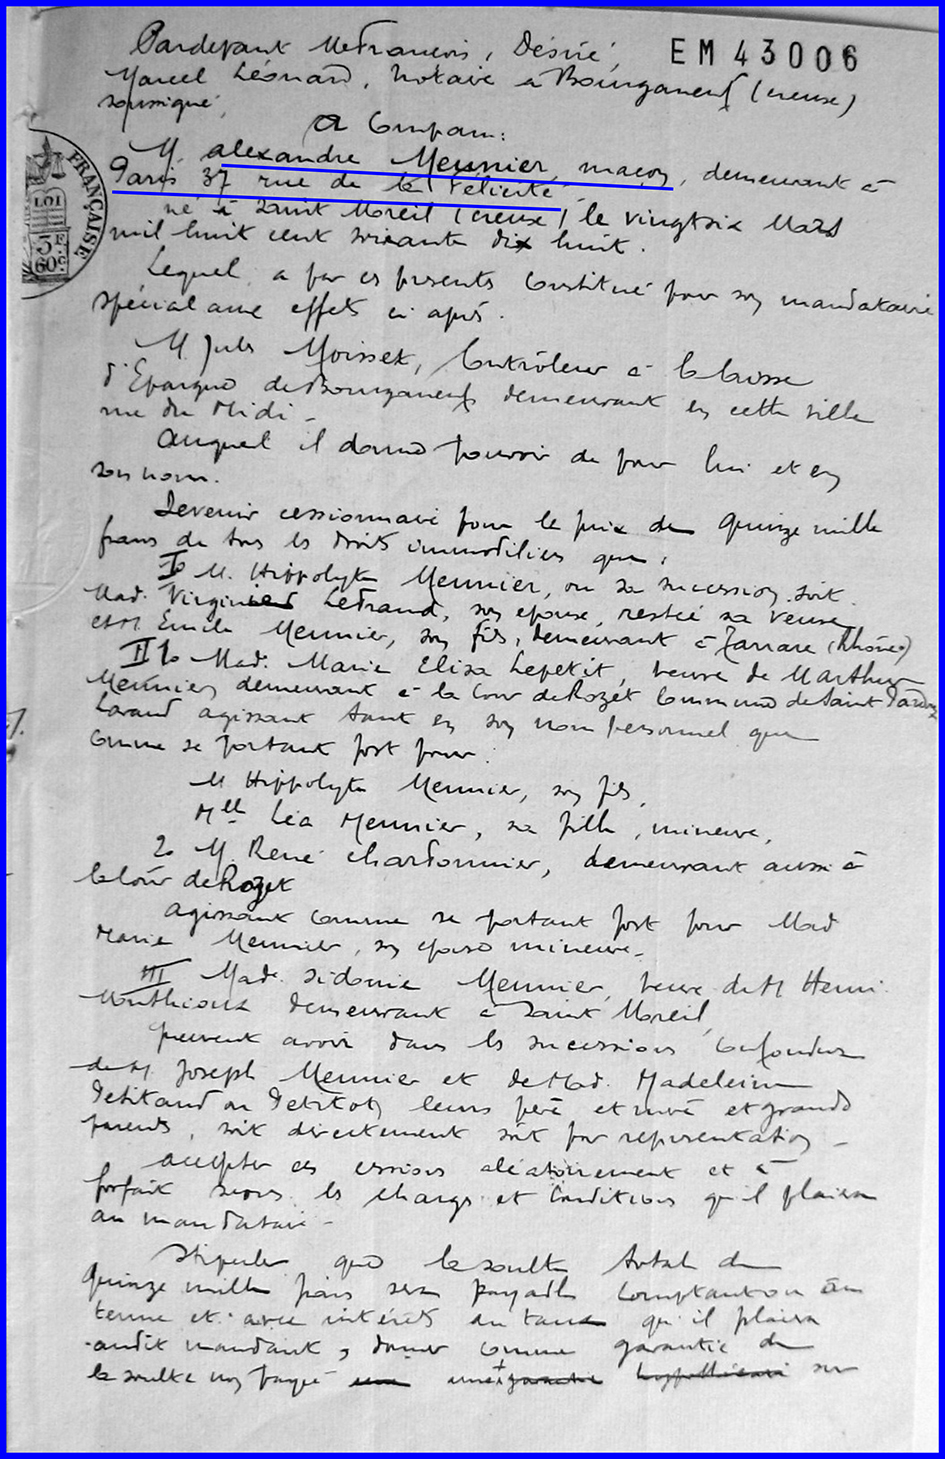 Pardevant Me François, Désiré,
EM 43006
Marcel Léonard, Notaire à Bourganeuf (Creuse)
soussigné,
A Comparu :
M. Alexandre Meunier, maçon, demeurant à
Paris 37 rue de la Félicité
né à Saint Moreil (Creuse) le vingtsix Mars
mil huit cent soixante dix huit.
FRANÇAISE
LOI
3 F
60c
Lequel a par ces présentes constitué pour son mandataire
spécial aux effets ci après.
M. Jules Moisset, Contrôleur à la Caisse
d'Epargne de Bourganeuf demeurant en cette ville
rue du Midi -
Auquel il donne pouvoir de pour lui et en
son nom.
Devenir cessionnaire pour le prix de quinze mille
francs de tous les droits immobiliers que :
I M. Hippolyte Meunier, ou sa succession soit
Mad. Virginie Letrand, son épouse, restée sa veuve
et M Emile Meunier, son fils, demeurant à Tarrare (Rhône)
II 1o Mad. Marie Elisa Lepetit, veuve de M Arthur
Meunier demeurant à la Cour de Rozet Commune de Saint Pardoux
Lavaud agissant tant en son nom personnel que
comme se portant fort pour :
M Hippolyte Meunier, son fils,
Mlle Léa Meunier, sa fille, mineure,
2o M. René Chardonnier, demeurant aussi à
la Cour de Rozet
Agissant comme se portant fort pour Mad
Marie Meunier, son épouse mineure -
III Mad. Sidonie Meunier, veuve de M Henri
demeurant à Saint Moreil,
peuvent avoir dans les successions confondues
de M. Joseph Meunier et de Mad. Madeleine
Petitaud ou Petitot, leurs père et mère et grands
parents, soit directement soit par représentation -
accepter ces cessions aléatoirement et à
forfait sous les charges et conditions qu'il plaira
au mandataire -
Stipuler que la soulte totale de
quinze mille francs sera payable comptant ou à
terme et avec intérêts au taux qu'il plaira
audit mandant, donner comme garantie de
la soulte non payée une garantie hypothécaire sur